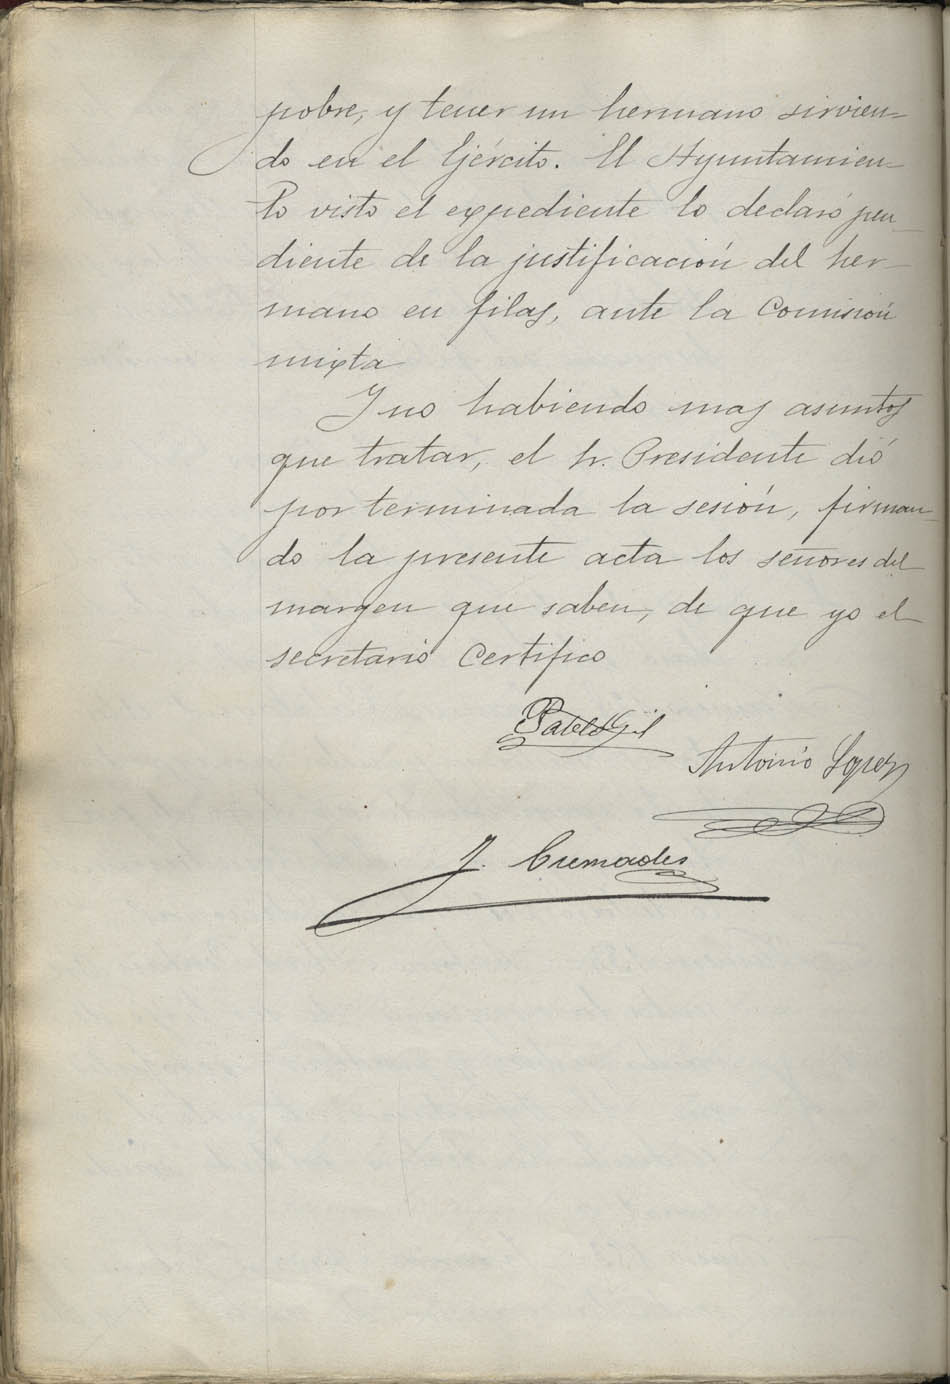 pobre, y tener un hermano sirvien-
do en el Ejército. El Ayuntamien-
to visto el expediente lo declaró pen-
diente de la justificación del her-
mano en filas, ante la Comisión
mixta
Y no habiendo mas asuntos
que tratar, el Sr. Presidente dió
por terminada la sesión, firman-
do la presente acta los señores del
margen que saben, de que yo el
secretario Certifico
Pablo Gil
Antonio Lopez
J. Cremades